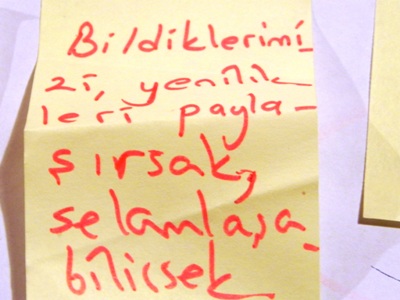 Bildiklerimi-
zi, yenilik-
leri payla-
şırsak,
selamlaşa-
bilirsek